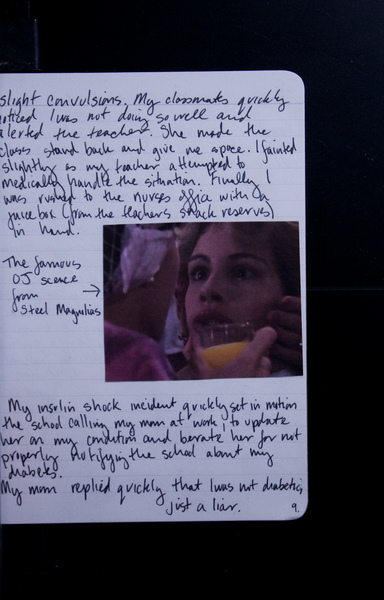 slight convulsions. My classmates quickly
noticed I was not doing so well and
alerted the teacher. She made the
class stand back and give me space. I fainted
slightly as my teacher attempted to
medically handle the situation. Finally I
was rushed to the nurses office with a
juice box (from the teachers snack reserves)
in hand.
The famous
OJ scence
from →
Steel Magnolias
My insulin shock incident quickly set in motion
the school calling my mom at work; to update
her on my condition and berate her for not
properly notifying the school about my
diabetes.
My mom replied quickly that I was not diabetic,
just a liar.
9.